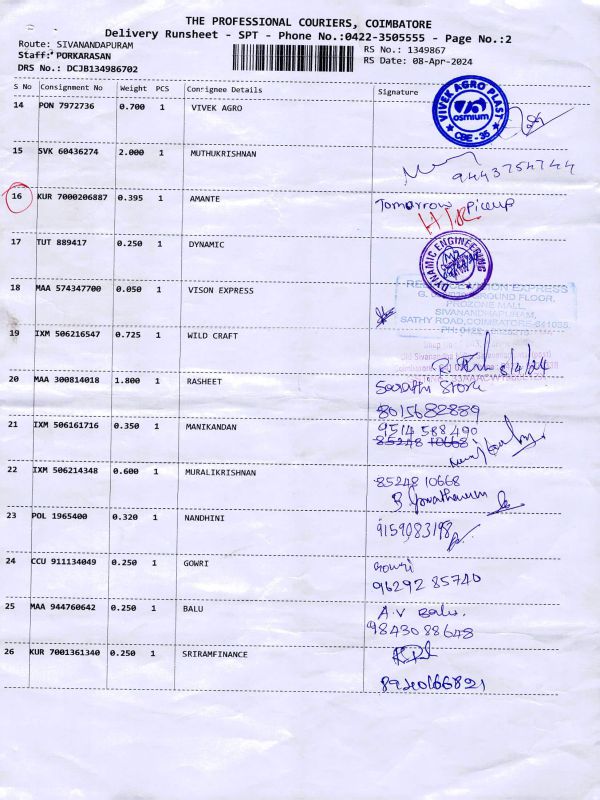 THE PROFESSIONAL COURIERS, COIMBATORE
Delivery Runsheet - SPT - Phone No.:0422-3505555 - Page No.:2
Route: SIVANANDAPURAM RS No.: 1349867
Staff: PORKARASAN RS Date: 08-Apr-2024
DRS No.: DCJB134986702
S No Consignment No Weight PCS Consignee Details Signature
14 PON 7972736 0.700 1 VIVEK AGRO
VIVEK AGRO PLAST
osmium
CBE - 35
15 SVK 60436274 2.000 1 MUTHUKRISHNAN
9443754744
16 KUR 7000206887 0.395 1 AMANTE Tomorrow Piceup
17 TUT 889417 0.250 1 DYNAMIC
DYNAMIC ENGINEERING
18 MAA 574347700 0.050 1 VISON EXPRESS
GROUND FLOOR,
PROZONE MALL,
SIVANANDHAPURAM,
SATHY ROAD, COIMBATORE-641035.
19 IXM 506216547 0.725 1 WILD CRAFT
8/4/24
20 MAA 300814018 1.800 1 RASHEET Sarathi Store
8015682889
21 IXM 506161716 0.350 1 MANIKANDAN 9514 588 490
85248 10668
22 IXM 506214348 0.600 1 MURALIKRISHNAN 85248 10668
23 POL 1965400 0.320 1 NANDHINI 9159083198
24 CCU 911134049 0.250 1 GOWRI Gowri
96292 85740
25 MAA 944760642 0.250 1 BALU A.V Balu.
98430 88648
26 KUR 7001361340 0.250 1 SRIRAMFINANCE